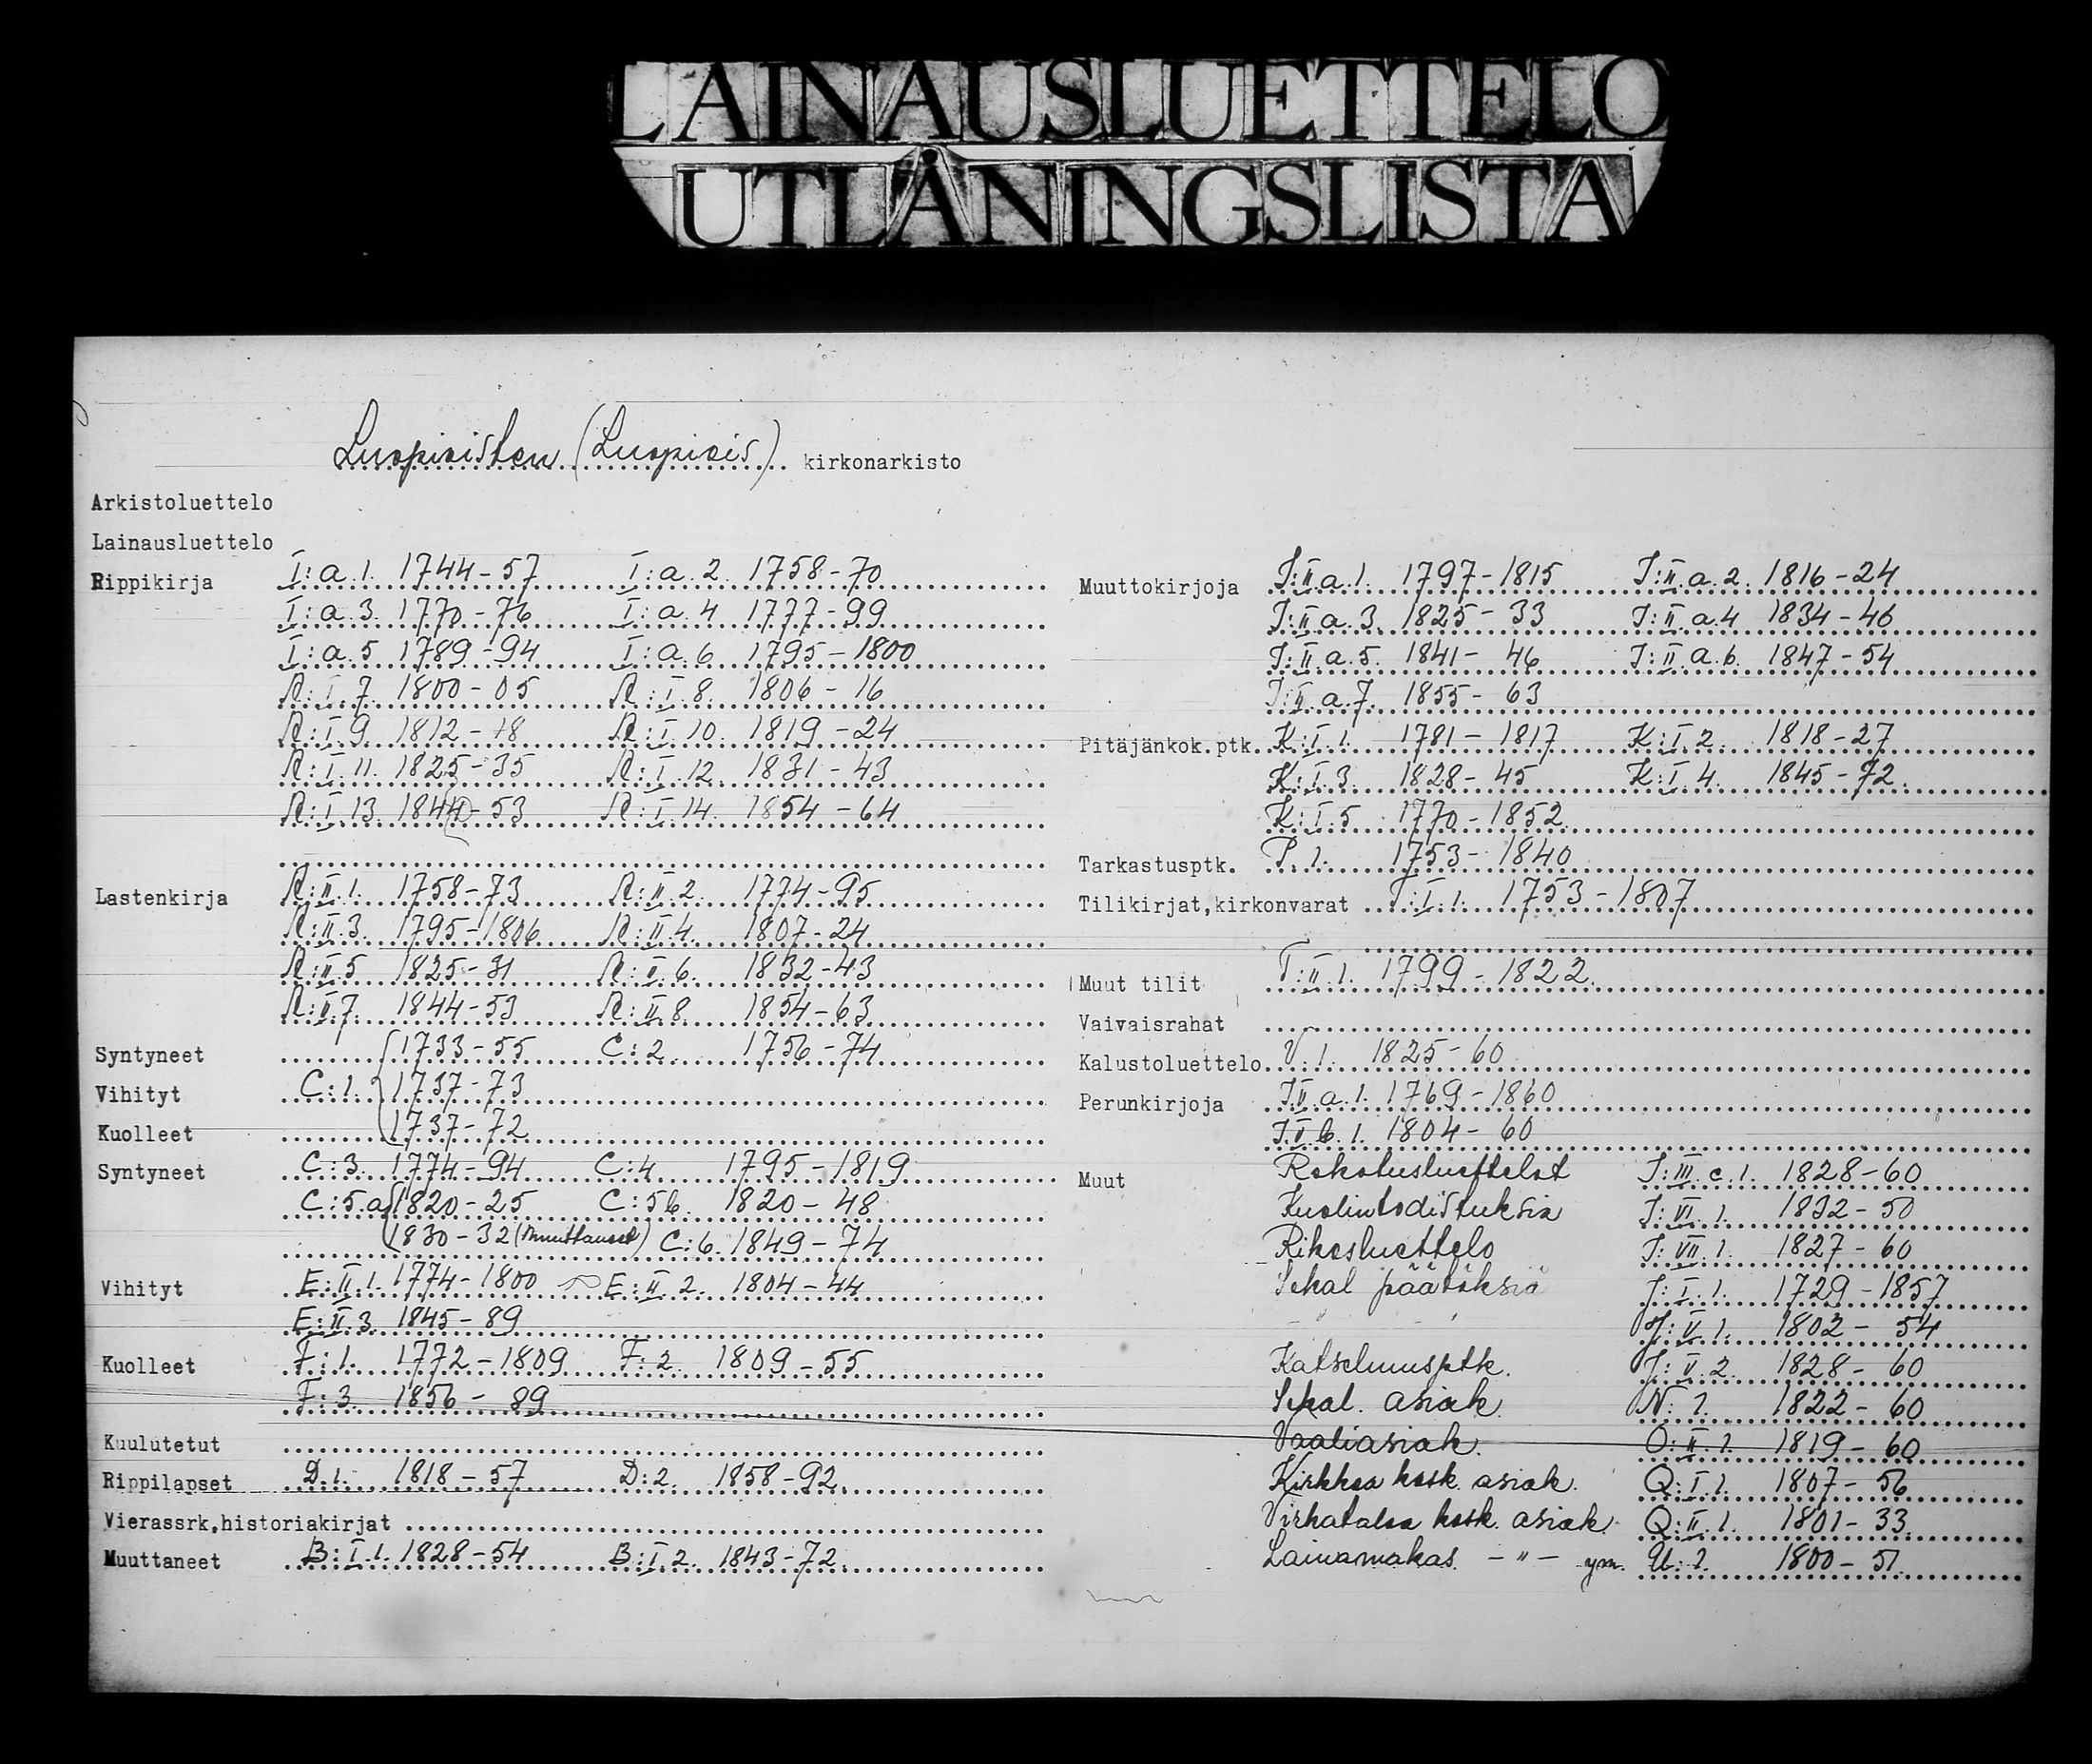 LAINAUSLUETTELO
UTLÅNINGSLISTA
Luopioisten (Luopiois) kirkonarkisto
Arkistoluettelo
Lainausluettelo
Rippikirja I:a.1. 1744-57 I:a.2. 1758-70
I:a.3. 1770-76 I:a.4 1777-99
I:a.5 1789-94 I:a.6 1795-1800
R:I.7. 1800-05 R:I.8. 1806-16
R:I.9 1812-18 R:I.10. 1819-24
R:I.11. 1825-35 R:I.12. 1831-43
R:I.13. 1844-53 R:I.14. 1854-64
Lastenkirja R:II.1. 1758-73 R:II.2. 1774-95
R:II.3. 1795-1806 R:II.4. 1807-24
R:II.5 1825-31 R:II.6. 1832-43
R:II.7. 1844-53 R:II.8. 1854-63
Syntyneet 1733-55 C:2. 1756-74
Vihityt C:1. 1737-73
Kuolleet 1737-72
Syntyneet C:3. 1774-94 C:4 1795-1819
C:5.a 1820-25 C:5b. 1820-48
1830-32 (Muuttaneet) C:6. 1849-74
Vihityt E:II.1. 1774-1800 E:II.2. 1804-44
E:II.3. 1845-89
Kuolleet F:1. 1772-1809 F:2. 1809-55
F:3. 1856-89
Kuulutetut
Rippilapset D.1. 1818-57 D:2. 1858-92
Vierassrk,historiakirjat
Muuttaneet B:I.1. 1828-54 B:I.2. 1843-72
Muuttokirjoja J:II.a.1. 1797-1815 J:II.a.2. 1816-24
J:II.a.3. 1825-33 J:II.a.4 1834-46
J:II.a.5. 1841-46 J:II.a.6. 1847-54
J:II.a.7. 1855-63
Pitäjänkok.ptk. K:I.1. 1781-1817 K:I.2. 1818-27
K:I.3. 1828-45 K:I.4. 1845-72.
K:I.5 1770-1852.
Tarkastusptk. P.1. 1753-1840
Tilikirjat,kirkonvarat T:I.1. 1753-1807
Muut tilit T:II.1. 1799-1822.
Vaivaisrahat
Kalustoluettelo V.1. 1825-60
Perunkirjoja J.V.a.1. 1769-1860
J.V.b.1. 1804-60
Muut Rokotusluettelot J:III.c.1. 1828-60
Kuolintodistuksia J:VI.1. 1832-50
Rikosluettelo J:VII.1. 1827-60
Sekal päätöksiä J:I.1. 1729-1857
" " J:V.1. 1802-54
Katselmusptk. J:V.2. 1828-60
Sekal. asiak. N:1. 1822-60
Vaaliasiak. O:II.1. 1819-60
Kirkkoa kosk. asiak. Q:I.1. 1807-56
Virkataloa kosk. asiak. Q:II.1. 1801-33.
Lainamakas. -"- ym. U:1. 1800-51.